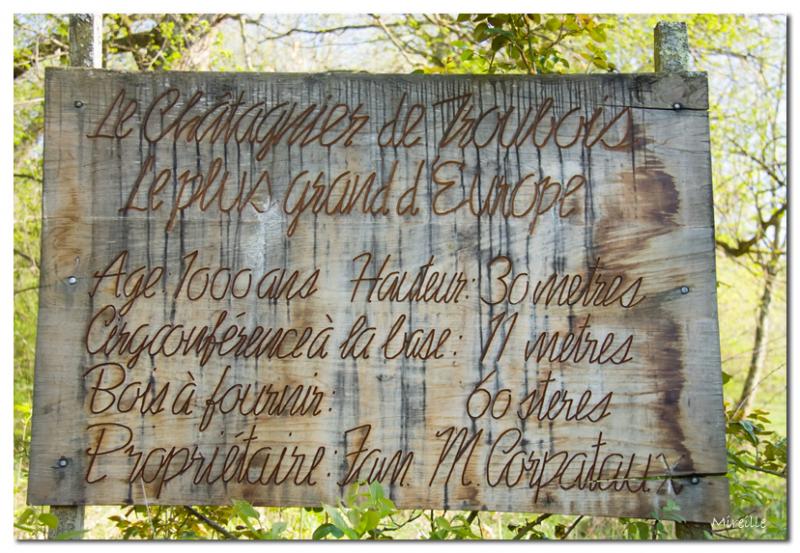 Le Châtagnier de Troubois
Le plus grand d'Europe
Age 1000 ans Hauteur: 30 metres
Cirgconférence à la base: 11 metres
Bois à fournir: 60 steres
Propriétaire: Fam. M. Corpataux
Mireille